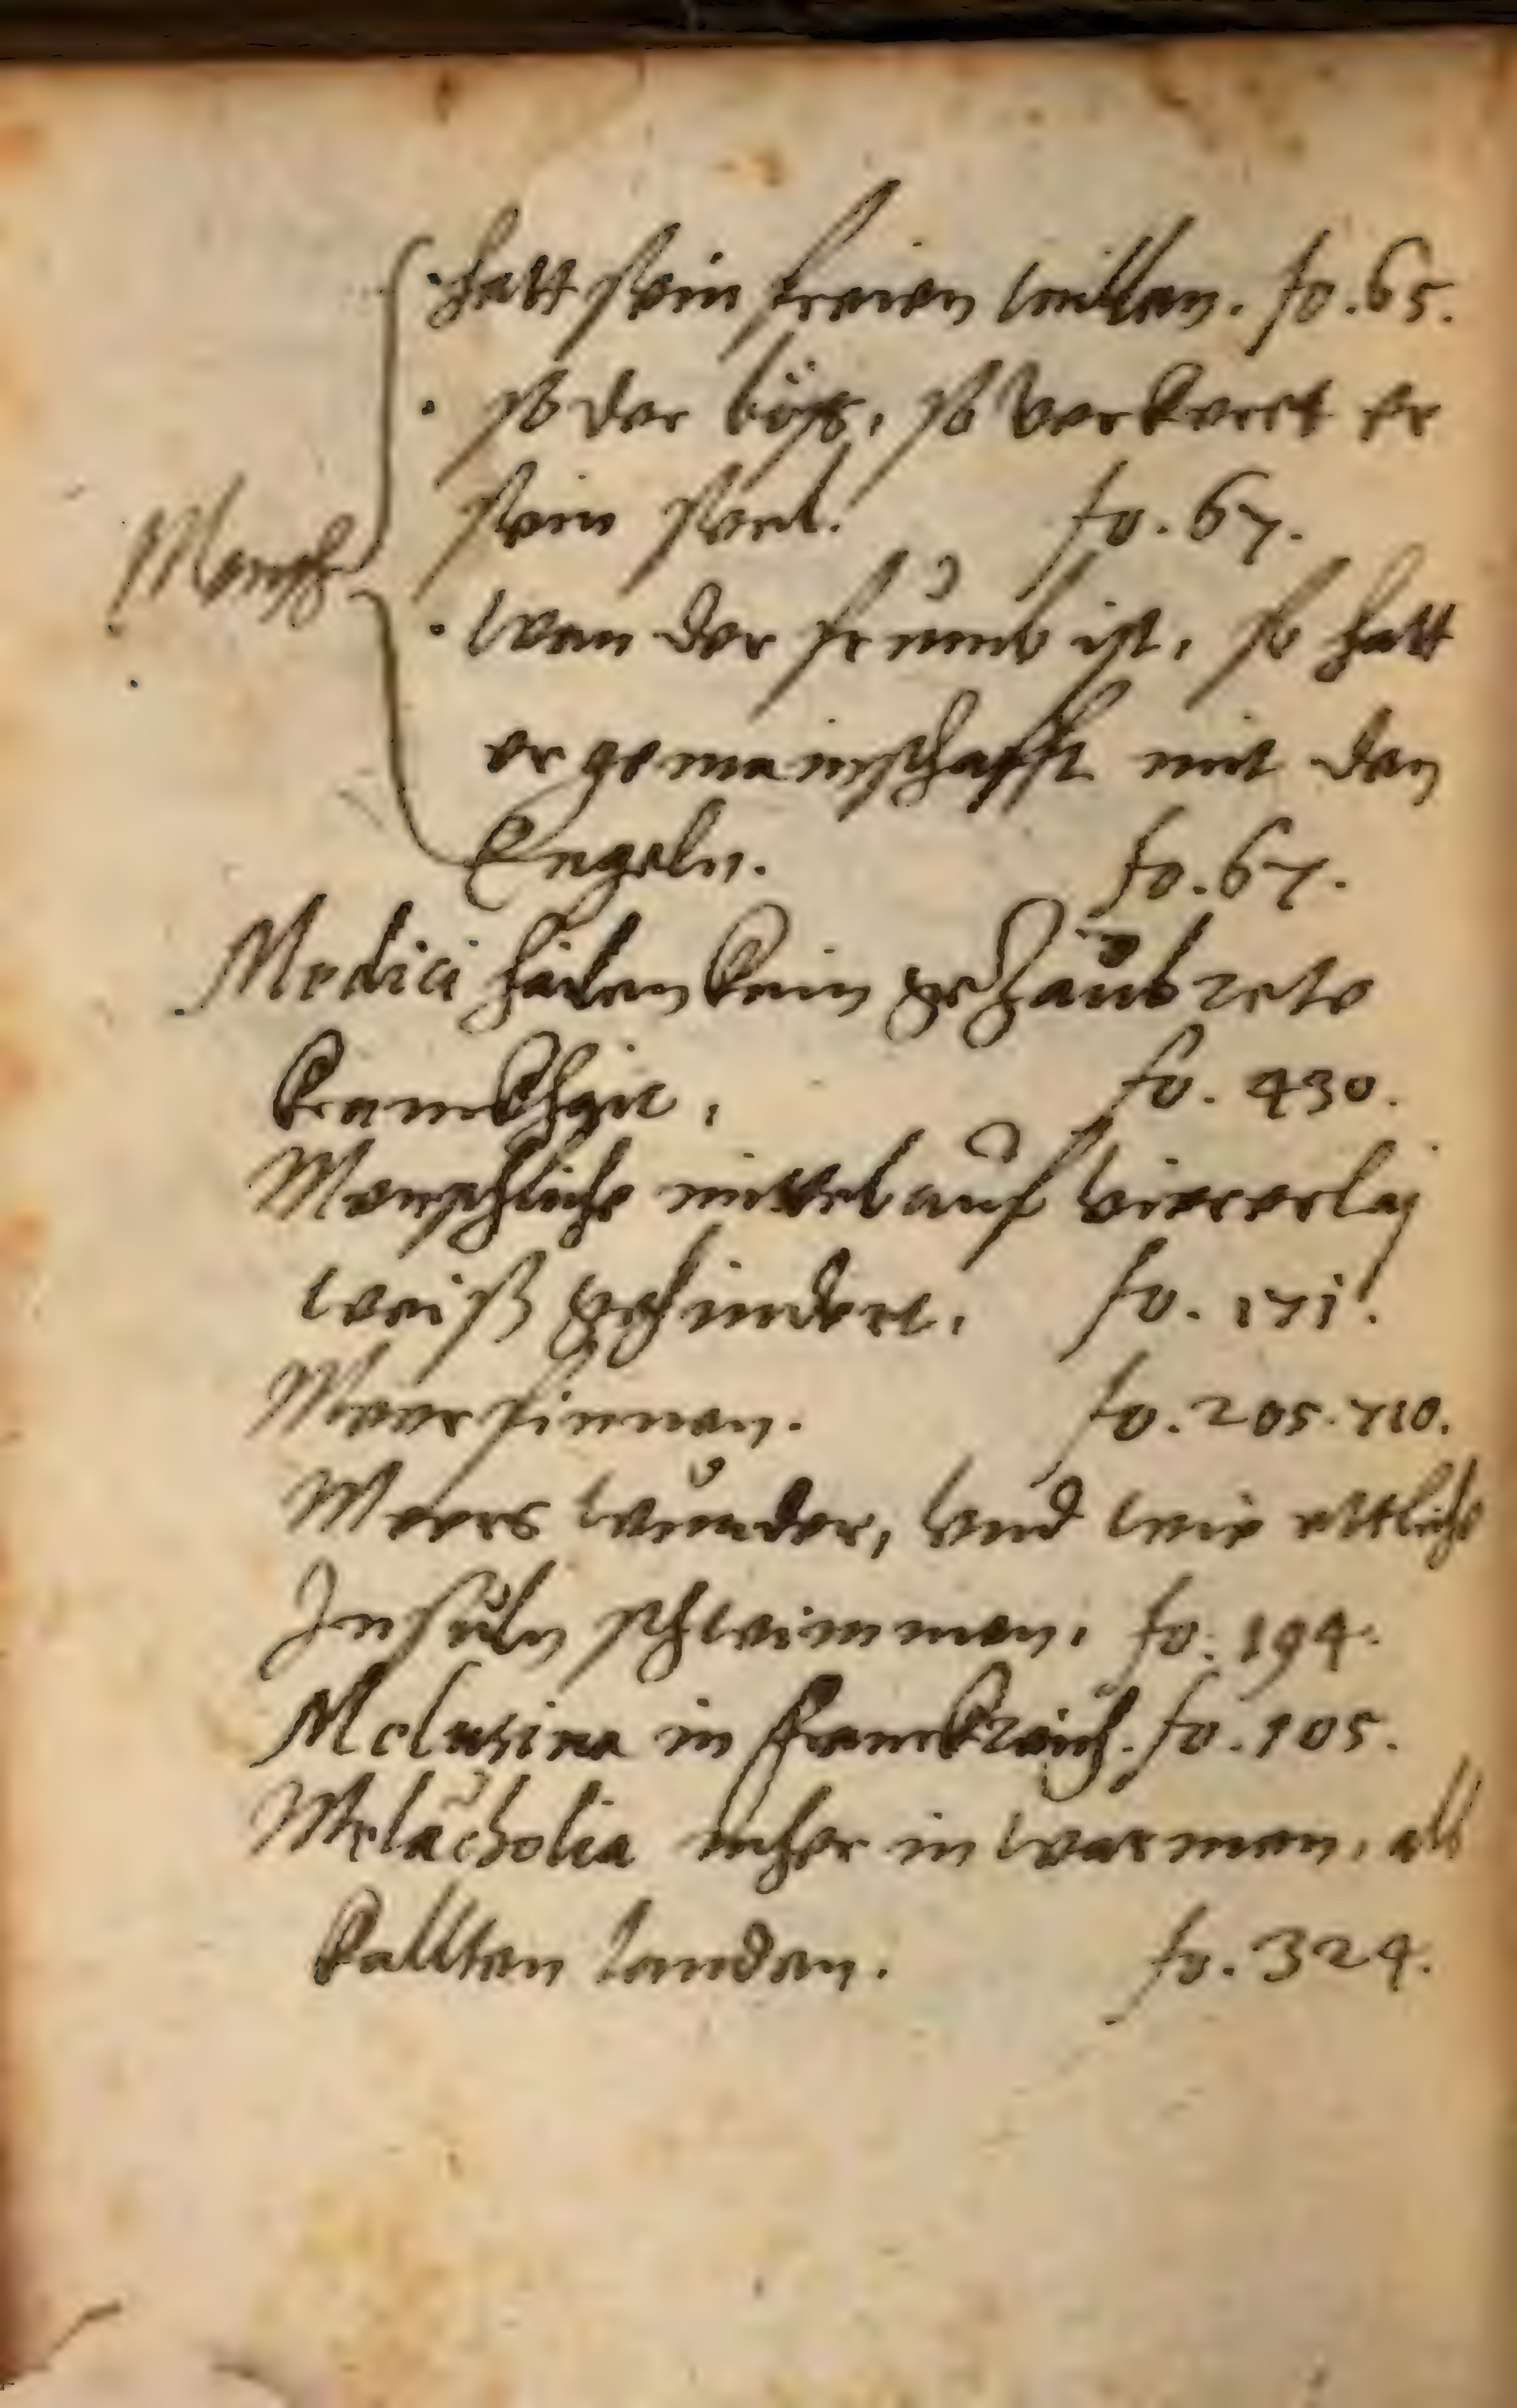 hatt sein freien willen. fo. 65.
so der böß, so verkeret er
sein seel. fo. 67.
Mensch
wan der frumb ist, so hatt
er gemainschafft mit den
Engeln. fo. 67.
Medici hailen kain gezaubrete
kranckhait, fo. 430.
Menschliche mittel auf viererlaj
weiß gehindert, fo. 171.
Meerfinnen. fo. 205. 710.
Meers wunder, vnd wie ettliche
Insuln schwimmen, fo. 194.
Melusina in Franckreich. fo. 105.
Melācholia meher in warmen, alß
kallten landen. fo. 324.